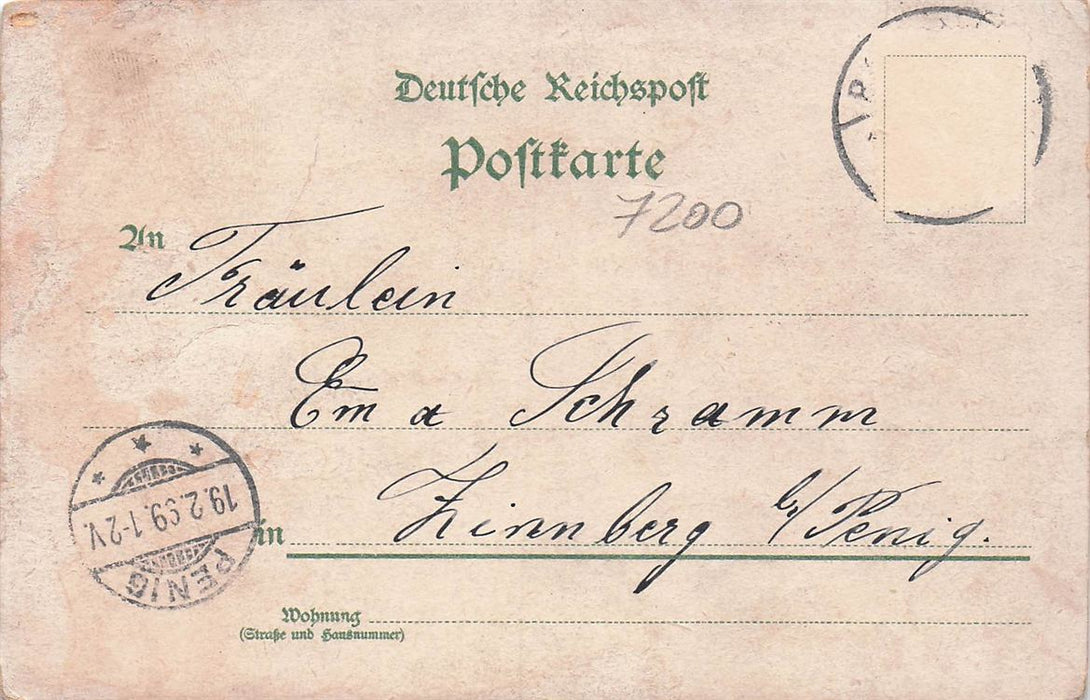 Deutsche Reichspost
Postkarte
7200
An Fräulein
Em̅a Schramm
in Zinnberg b/Penig.
Wohnung
(Straße und Hausnummer)
PENIG
19.2.99.1-2V.